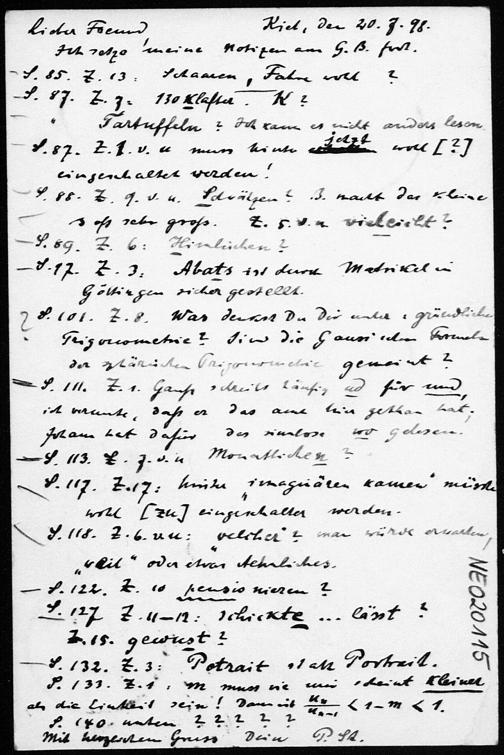 Lieber Freund! Kiel, den 20.7.98.
Ich setze meine Notizen am G. B. fort.
S. 85. Z. 13: Schaaren, Fahne wohl ?
S. 87. Z. 7: 130 Klafter. K?
" Tartuffeln? Ich kann es nicht anders lesen.
S. 87. Z. 1. v. u muss hinter jetzt wohl [?]
eingeschaltet werden!
S. 88. Z. 9. v. u. ? B. macht das kleine
s oft sehr gross. Z. 5. v. u vieleicht?
S. 89. Z. 6: Himlischen?
S. 97. Z. 3: Abats ist durch Matrikel in
Göttingen sicher gestellt.
? S. 101. Z. 8. Was denkst Du Dir unter: gründliche
Trigonometrie? Sind die Gaussischen Formeln
der sphärischen Trigonometrie gemeint?
S. 111. Z. 1. Gauss schreibt häufig ud für und,
ich vermute, dass er das auch hier gethan hat;
Johann hat dafür das sinnlose wo gelesen.
S. 113. Z. 7. v. u Monatlichen ?
S. 117. Z. 17: hinter "imaginären kamen" müsste
wohl [zu] eingeschaltet werden.
S. 118. Z. 6. v. u: velicher? man würde erwarten,
"weil" oder etwas Aehnliches.
S. 122. Z. 10 pensionieren ?
S. 127 Z. 11-12: schickte ... lässt ?
Z. 15. gewust?
S. 132. Z. 3: Potrait statt Portrait.
S. 133. Z. 1: m muss wie mir scheint kleiner
als die Einheit sein! Damit uₙ/uₙ₋₁ < 1-m < 1.
S. 140. unten ? ? ? ? ?
Mit herzlichem Gruss Dein P. St.
NE020115